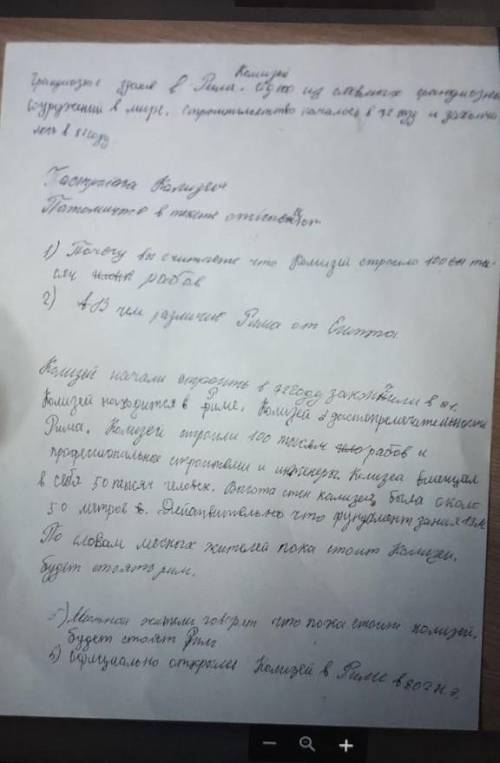 Колизей
Грандиозное здание в Рима. Одно из главных грандиозных
сооружений в мире. строительство началось в 72 году и закончи
лось в 81 году
Колизеи
Патомучто в тексте
1) Почему вы считаете что Колизей строило 100 ты-
сяч рабов
2) В чем различие Рима от Египта
Колизей начали строить в 72 году закончили в 81.
Колизей находится в риме. Колизей достопремечательности
Рима. Колизей строили 100 тысяч рабов и
професиональные строители и инженеры Колизеа вмещал
в себя 50 тысяч человек. Высота стен колизея была около
50 метров. Действительно что фундамент здания 13м
По словам месных жителей пока стоит Колизеи,
будет стоять рим.
5) Местные жители говорят что пока стоит колизей,
будет стоят Рим
6) официально открыли Колизей в Риме в 80г н э,